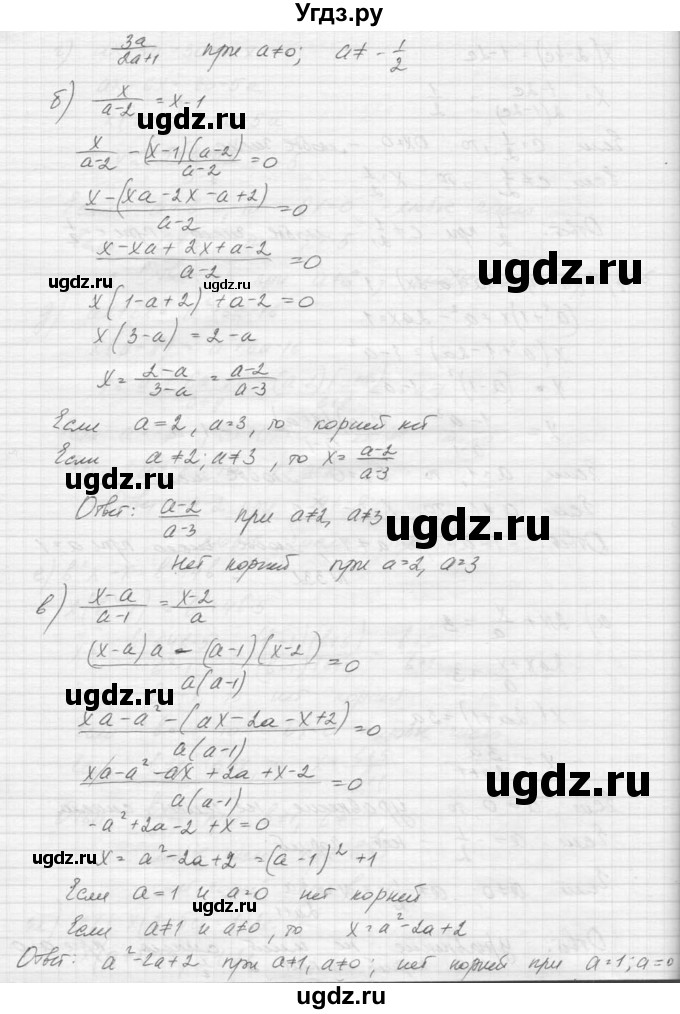 Угдз.ру
3a/(2a+1) при a≠0; a≠ -1/2
б) x/(a-2) = x-1
ugdz.ru
x/(a-2) - (x-1)(a-2)/(a-2) = 0
(x-(xa-2x-a+2))/(a-2) = 0
ugdz.ru
(x-xa+2x+a-2)/(a-2) = 0
ugdz.ru
x(1-a+2)+a-2=0
ugdz.ru
x(3-a)=2-a
x= (2-a)/(3-a) = (a-2)/(a-3)
Если a=2, a=3, то корней нет
Если a≠2; a≠3, то x= (a-2)/(a-3)
ugdz.ru
Ответ: (a-2)/(a-3) при a≠2, a≠3
ugdz.ru
Нет корней при a=2, a=3
в) (x-a)/(a-1) = (x-2)/a
ugdz.ru
((x-a)a - (a-1)(x-2))/(a(a-1)) = 0
ugdz.ru
(xa-a²-(ax-2a-x+2))/(a(a-1)) = 0
(xa-a²-ax+2a+x-2)/(a(a-1)) = 0
ugdz.ru
-a²+2a-2+x=0
ugdz.ru
x= a²-2a+2 =(a-1)²+1
Если a=1 и a=0 нет корней
Если a≠1 и a≠0, то x=a²-2a+2
ugdz.ru
Ответ: a²-2a+2 при a≠1, a≠0; нет корней при a=1; a=0
ugdz.ru